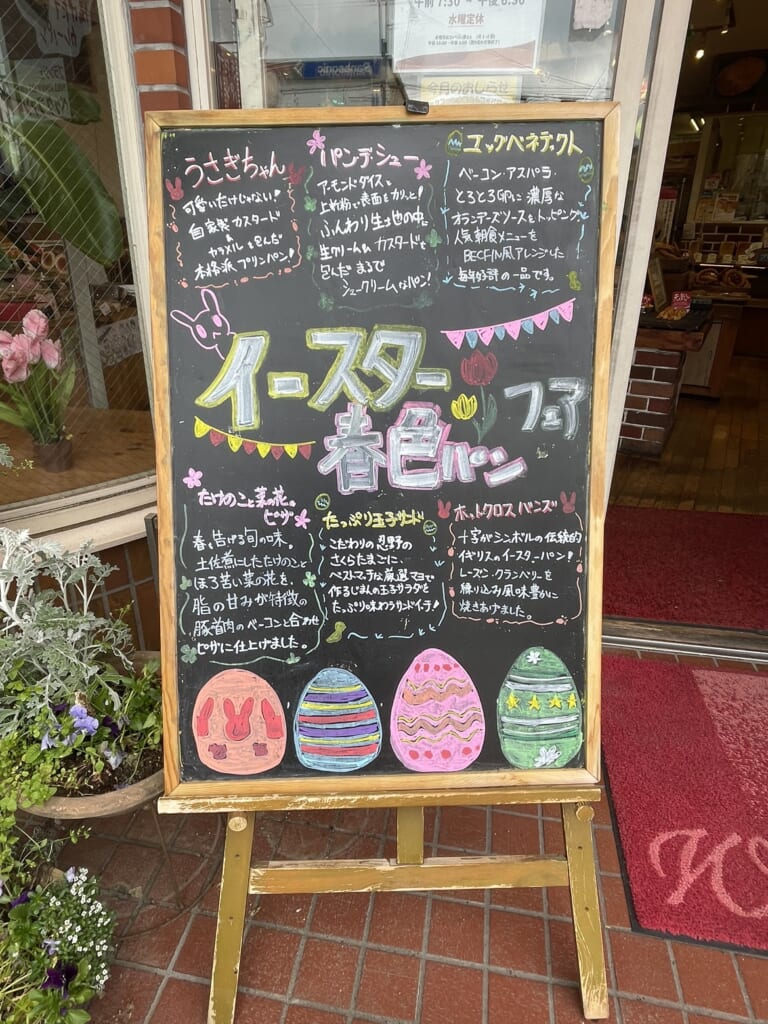 午前7:30～午後6:30
水曜定休
今月のおしらせ
うさぎちゃん
可愛いだけじゃない!
自家製カスタード
&
カラメルを包んだ
本格派プリンパン!
パンデシュー
アーモンドダイスと
上新粉で表面をカリッと!
ふんわり生地の中に
生クリームinカスタードを
包んだまるで
シュークリームなパン!
エッグベネディクト
ベーコン・アスパラ・
とろとろ卵に濃厚な
オランデーズソースをトッピング
人気朝食メニューを
BECFIN風アレンジした
毎年好評の一品です。
イースター
フェア
春色パン
たけのこと菜の花の
ピザ
春を告げる旬の味。
土佐煮にしたたけのこと
ほろ苦い菜の花を、
脂の甘みが特徴の
豚首肉のベーコンと合わせ
ピザに仕上げました。
たっぷり玉子サンド
こだわりの忍野の
さくらたまごに、
ベストマッチな厳選マヨで
作るじまんの玉子サラダを
たっぷり味わうサンドイッチ!
ホットクロスバンズ
十字がシンボルの伝統的
イギリスのイースターパン!
レーズン・クランベリーを
練り込み風味豊かに
焼きあげました。